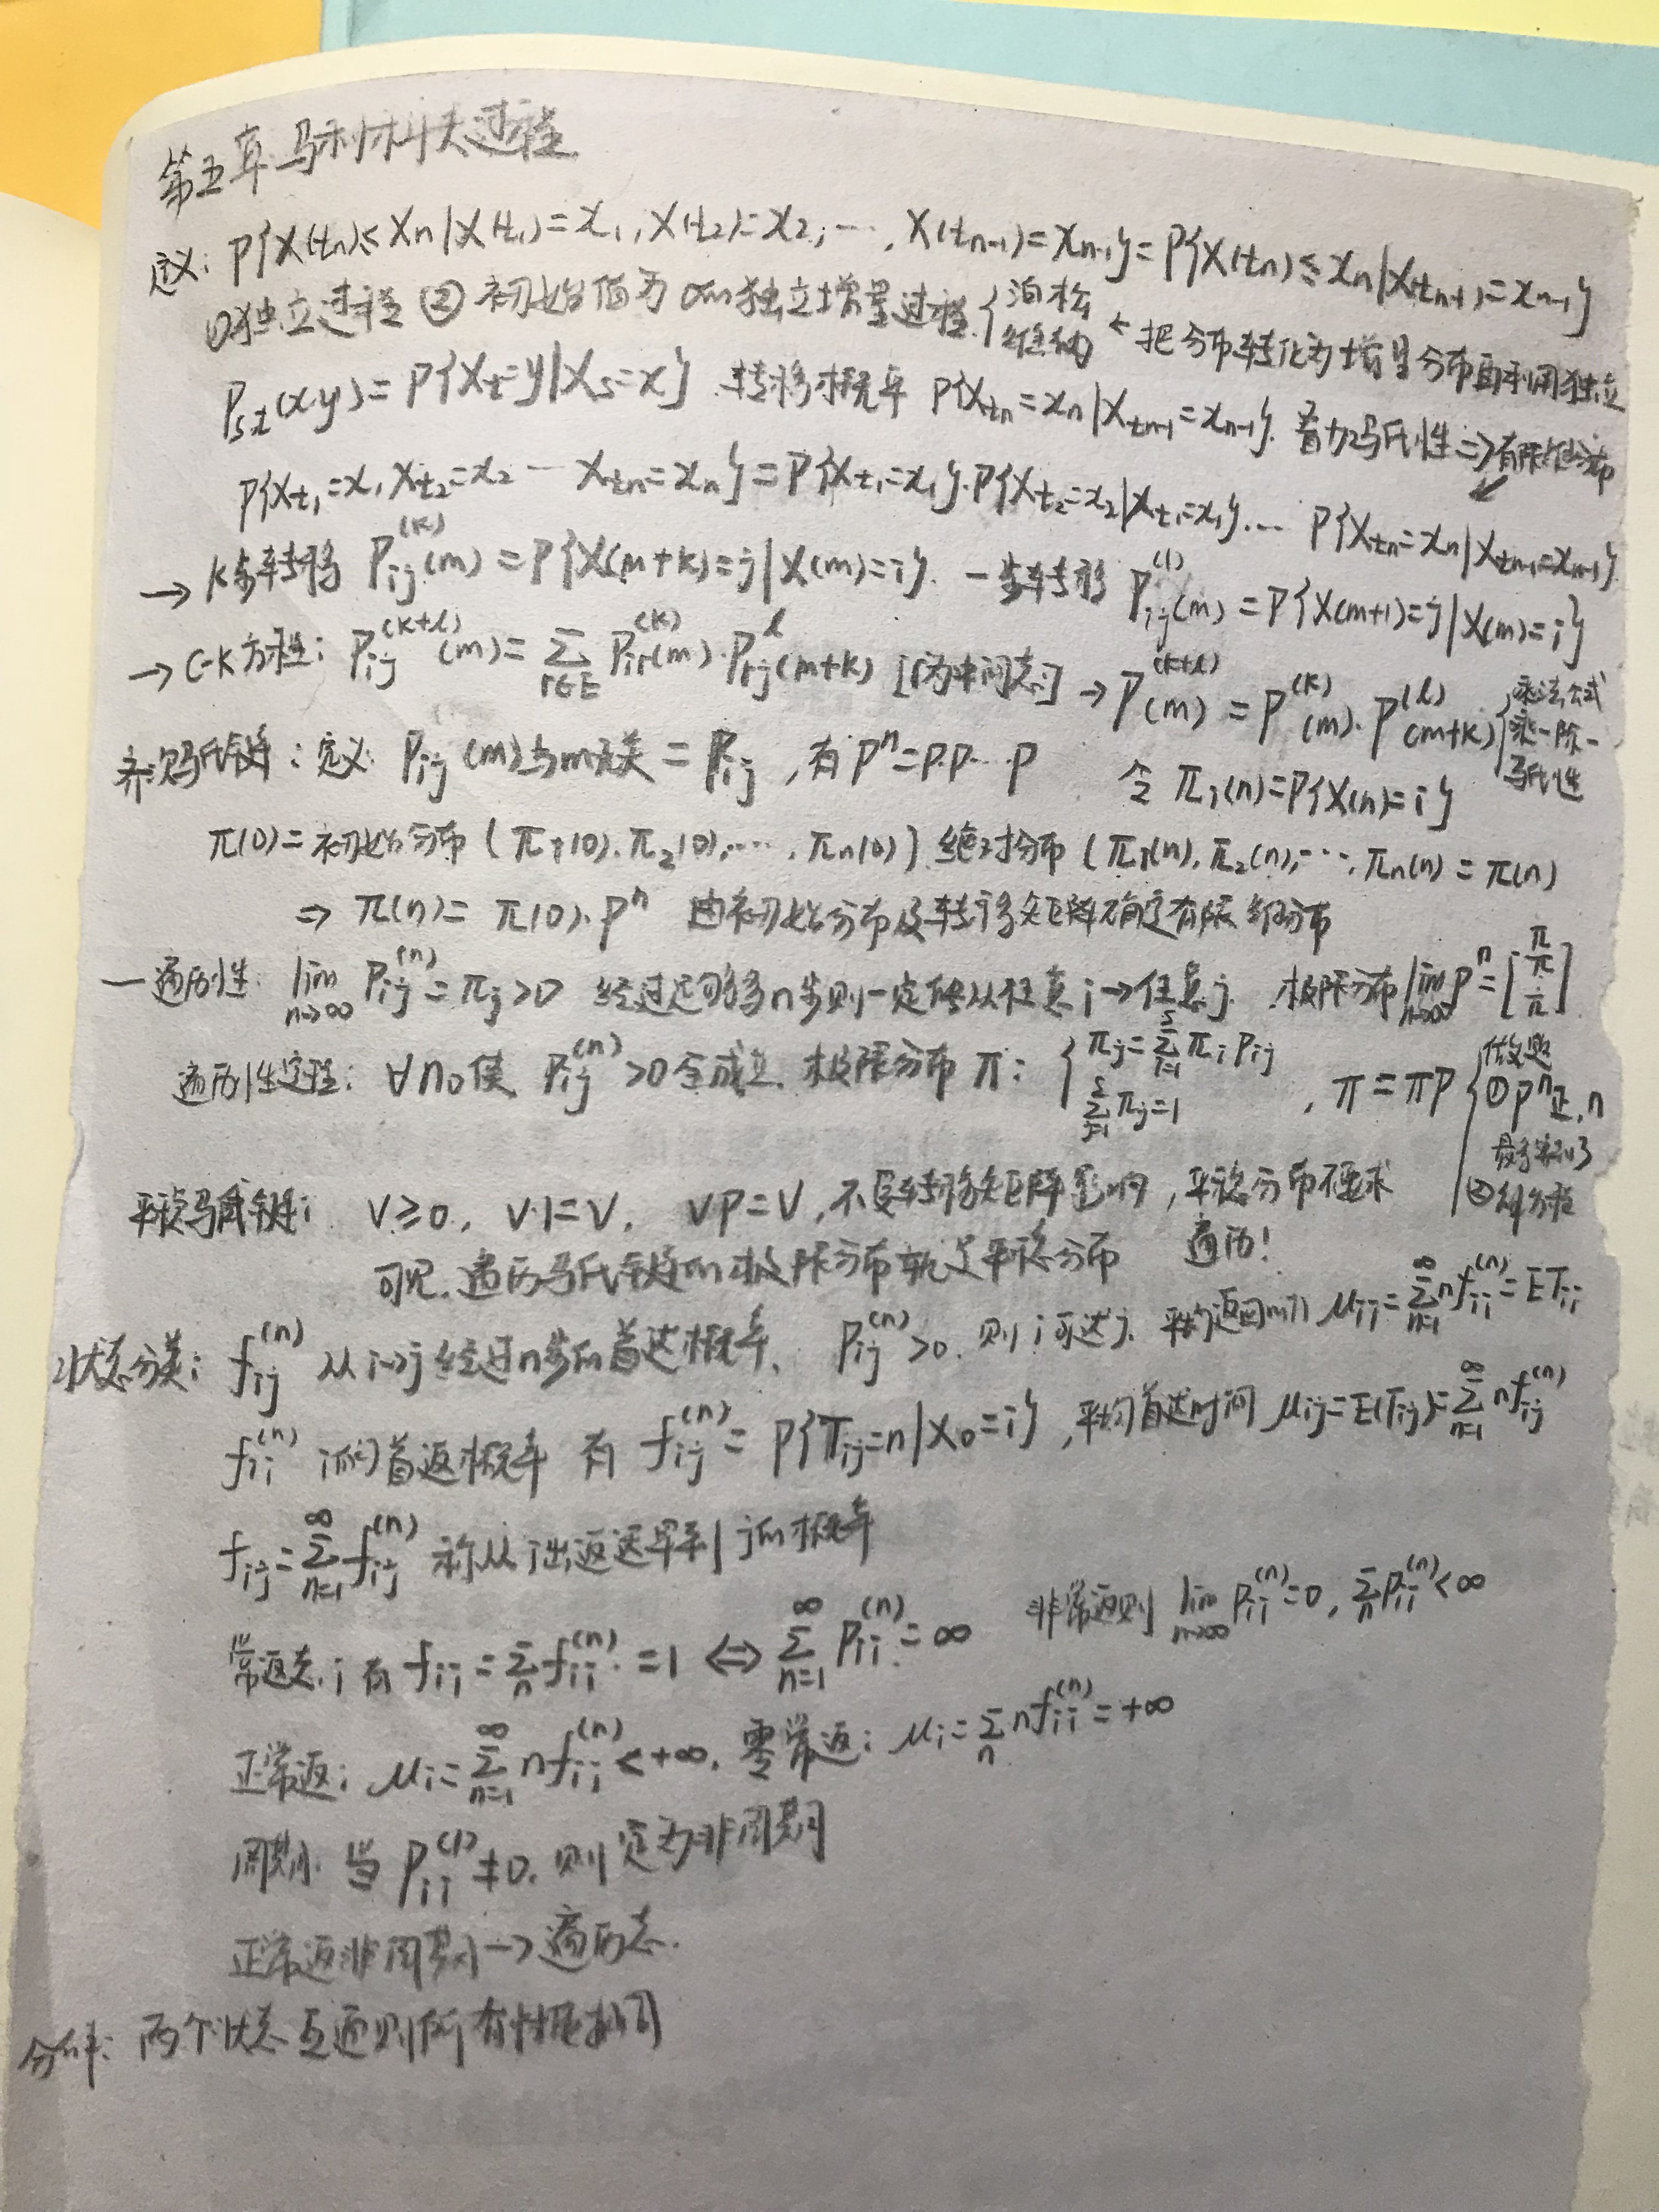 第五章 马利科夫过程
定义: P{X(tn)≤Xn|X(t1)=x1, X(t2)=x2, …, X(tn-1)=xn-1}=P{X(tn)≤xn|Xtn-1=xn-1}
①独立过程 ②初始值为0的独立增量过程{泊松 维纳 ← 把分布转化为增量分布再利用独立
Pst(x,y)=P{Xt=y|Xs=x} 转移概率 P{Xtn=xn|Xtn-1=xn-1}. 着力马氏性⇒有限维分布
P{Xt1=x1 Xt2=x2 … Xtn=xn}=P{Xt1=x1}·P{Xt2=x2|Xt1=x1}… P{Xtn=xn|Xtn-1=xn-1}
→ K步转移 Pij^(k)(m)=P{X(m+k)=j|X(m)=i}. 一步转移 Pij^(1)(m)=P{X(m+1)=j|X(m)=i}
→ C-K方程: Pij^(k+l)(m)=∑_{r∈E} Pir^(k)(m)·Prj^l(m+k) [r为中间态] → P^(k+l)(m)=P^(k)(m)·P^(l)(m+k) {乘法公式
马氏性
齐次马氏链: 定义 Pij(m)与m无关=Pij, 有P^n=P·P…P 令πi(n)=P{X(n)=i}
π(0)=初始分布(π1(0),π2(0),…,πn(0)) 绝对分布(π1(n),π2(n),…,πn(n)=π(n)
⇒ π(n)=π(0)·P^n 由初始分布及转移矩阵确定有限维分布
一遍历性. lim_{n→∞} Pij^(n)=πj>0 经过足够多n步则一定能从任意i→任意j. 极限分布 lim_{n→∞} P^n=[π π ⋮ π]
遍历性定理: ∀n0使 Pij^(n)>0全成立. 极限分布π: {πj=∑_{i=1}^s πi Pij ∑_{j=1}^s πj=1, π=πP {做题 ①P^n正,n
②解方程
平稳马氏链: V≥0, V·1=V, VP=V, 不受转移矩阵影响, 平稳分布不要求
可见. 遍历马氏链的极限分布就是平稳分布 遍历!
状态分类: fij^(n) 从i→j经过n步的首达概率. Pij^(n)>0. 则i可达j. 平均返回时间 μii=∑_{n=1}^∞ nfii^(n)=ETii
fii^(n) i的首返概率 有 fij^(n)=P{Tij=n|X0=i}, 平均首达时间 μij=E(Tij)=∑_{n=1}^∞ nfij^(n)
fij=∑_{n=1}^∞ fij^(n) 称从i出返迟早到j的概率
常返态 i 有 fii=∑_n fii^(n)=1 ⇔ ∑_{n=1}^∞ Pii^(n)=∞ 非常返则 lim_{n→∞} Pii^(n)=0, ∑_n Pii^(n)<∞
正常返: μi=∑_{n=1}^∞ nfii^(n)<+∞. 零常返: μi=∑_n nfii^(n)=+∞
周期. 当 Pii^(1)≠0. 则定为非周期
正常返非周期→遍历态.
分解: 两个状态互通则所有性质相同